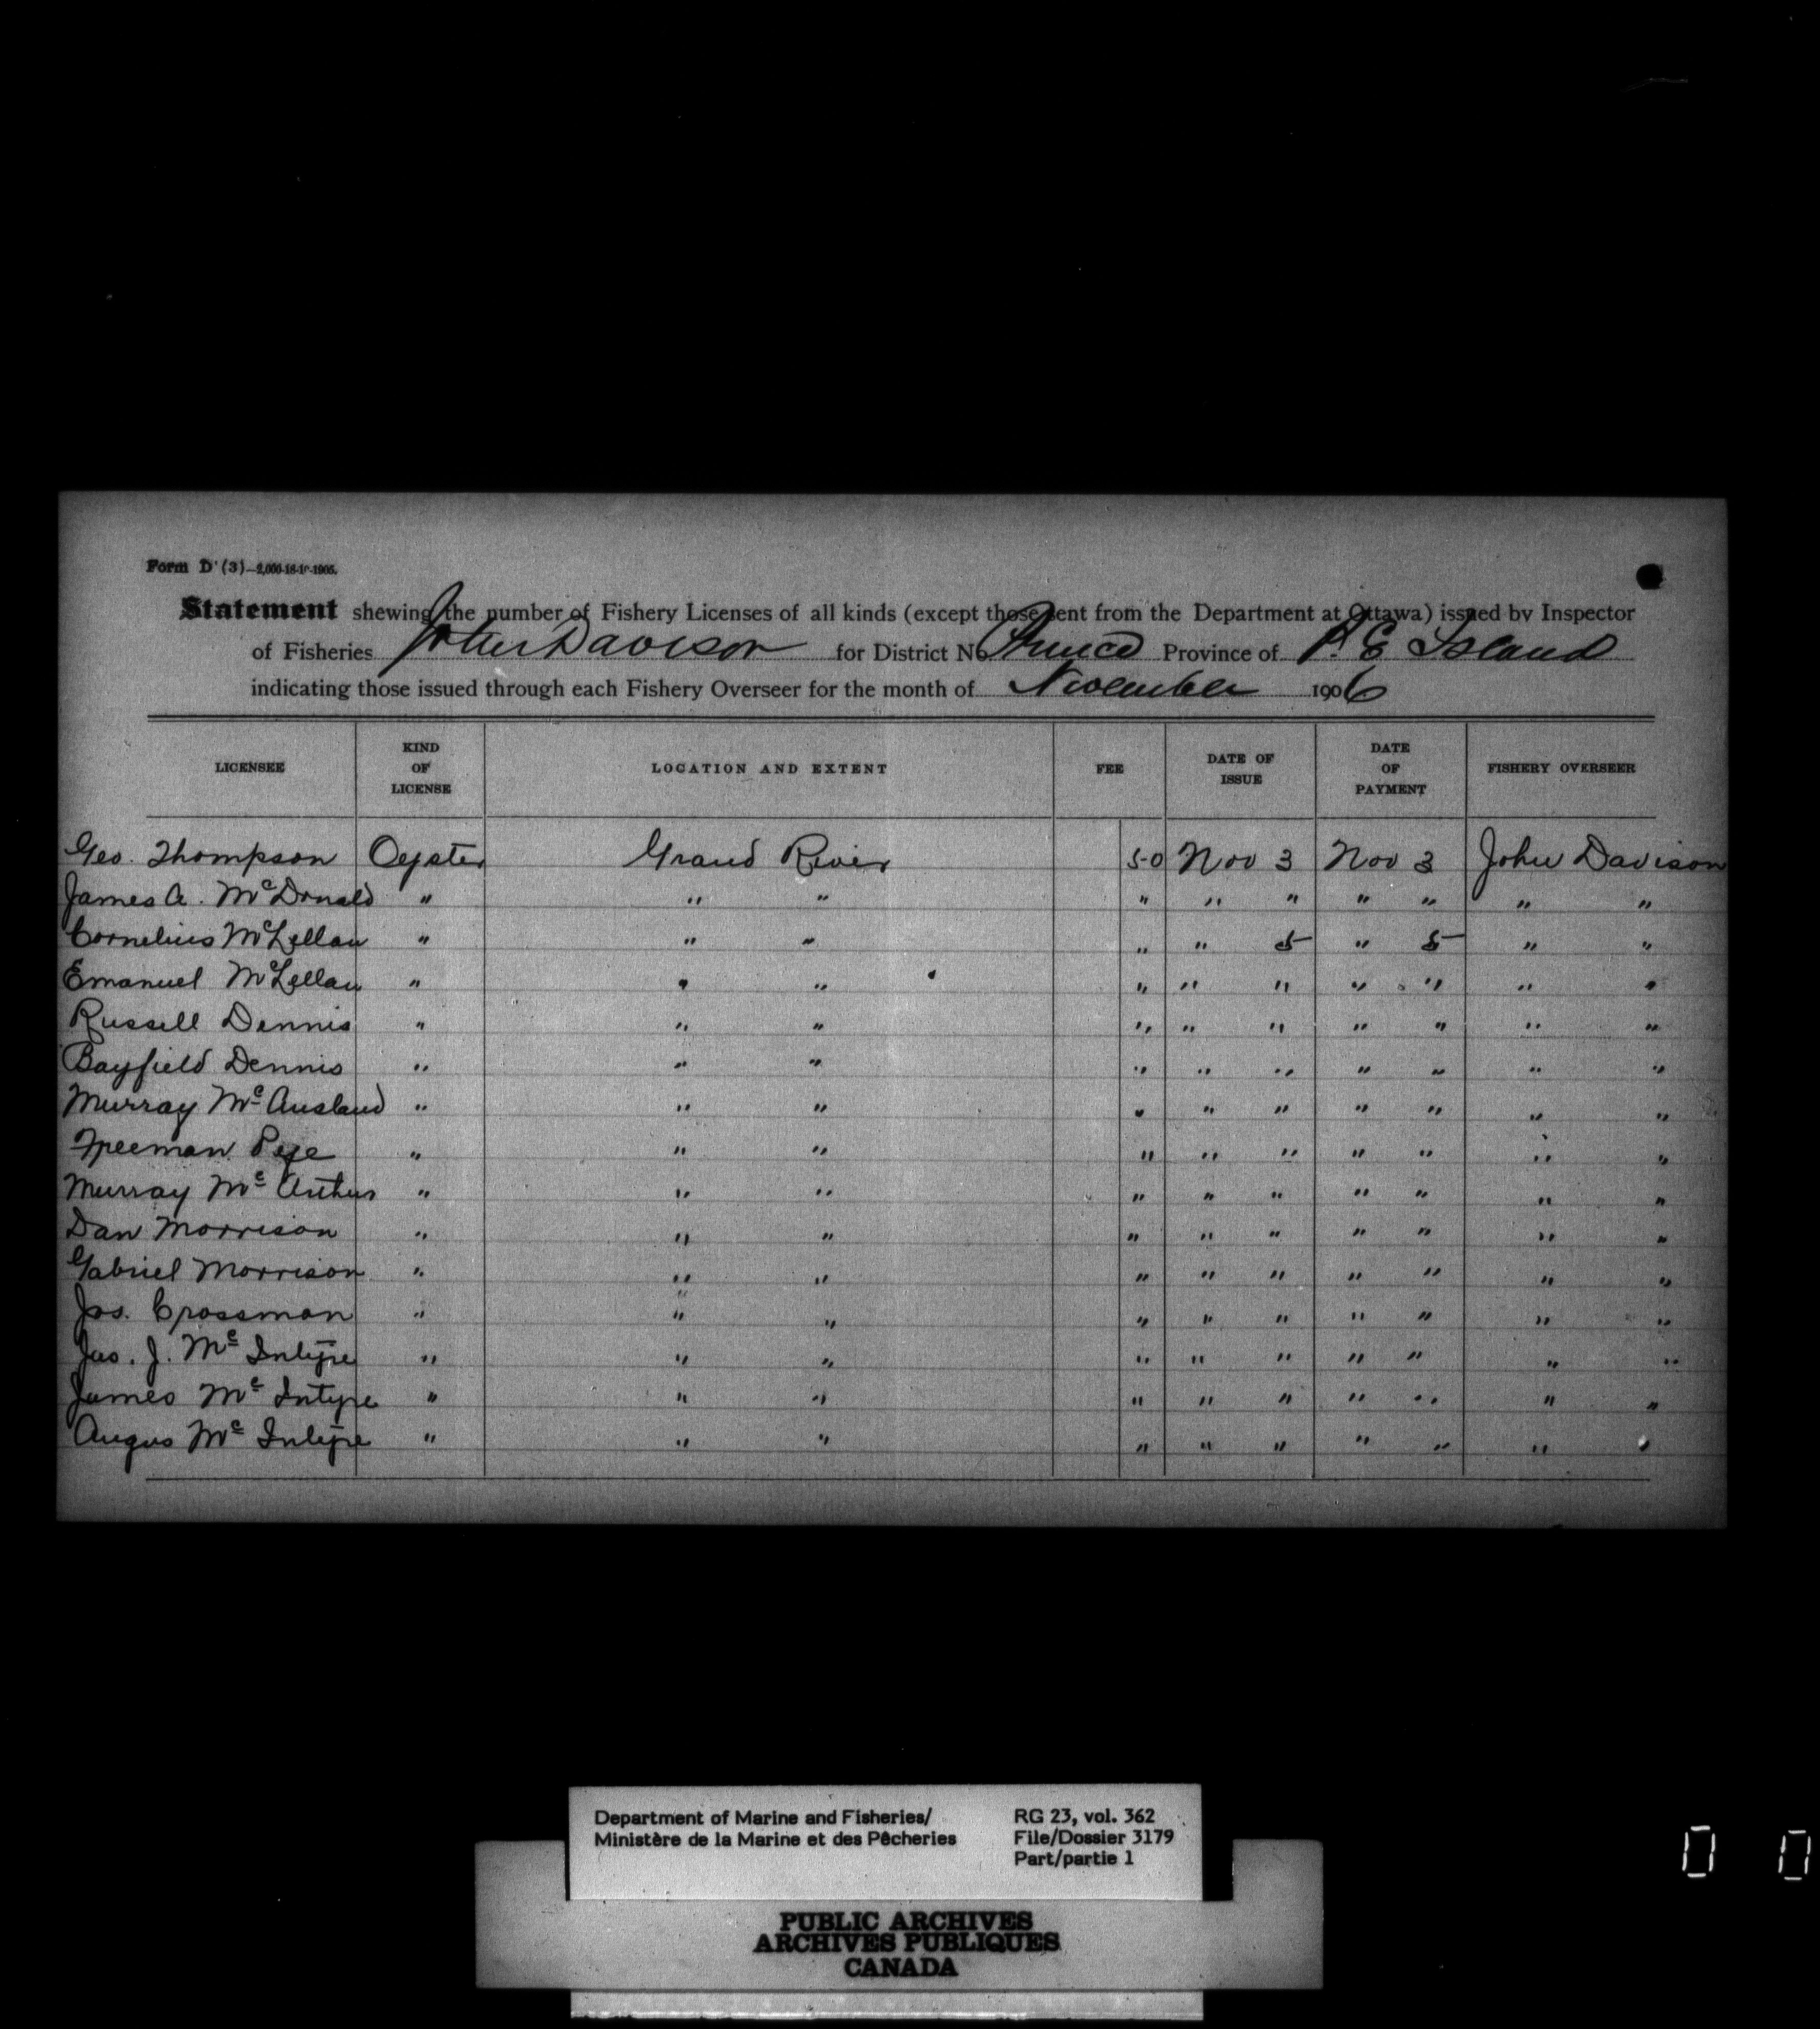 Form D (3)—2,000-18-10-1905.
Statement shewing the number of Fishery Licenses of all kinds (except those sent from the Department at Ottawa) issued by Inspector
of Fisheries John Davison for District No Prince Province of P. E Island
indicating those issued through each Fishery Overseer for the month of November 1906
LICENSEE KIND OF LICENSE LOCATION AND EXTENT FEE DATE OF ISSUE DATE OF PAYMENT FISHERY OVERSEER
Geo. Thompson Oyster Grand River 50 Nov 3 Nov 3 John Davison
James A. McDonald " " " " " " " " " "
Cornelius McLellan " " " " " 5 " 5 " "
Emanuel McLellan " " " " " " " " " "
Russell Dennis " " " " " " " " " "
Bayfield Dennis " " " " " " " " " "
Murray Mc Ausland " " " " " " " " " "
Freeman Pye " " " " " " " " " "
Murray Mc Arthur " " " " " " " " " "
Dan Morrison " " " " " " " " " "
Gabriel Morrison " " " " " " " " " "
Jos. Crossman " " " " " " " " " "
Jas. J. Mc Intyre " " " " " " " " " "
James Mc Intyre " " " " " " " " " "
Angus Mc Intyre " " " " " " " " " "
Department of Marine and Fisheries/ RG 23, vol. 362
Ministère de la Marine et des Pêcheries File/Dossier 3179
Part/partie 1
PUBLIC ARCHIVES
ARCHIVES PUBLIQUES
CANADA
0 0